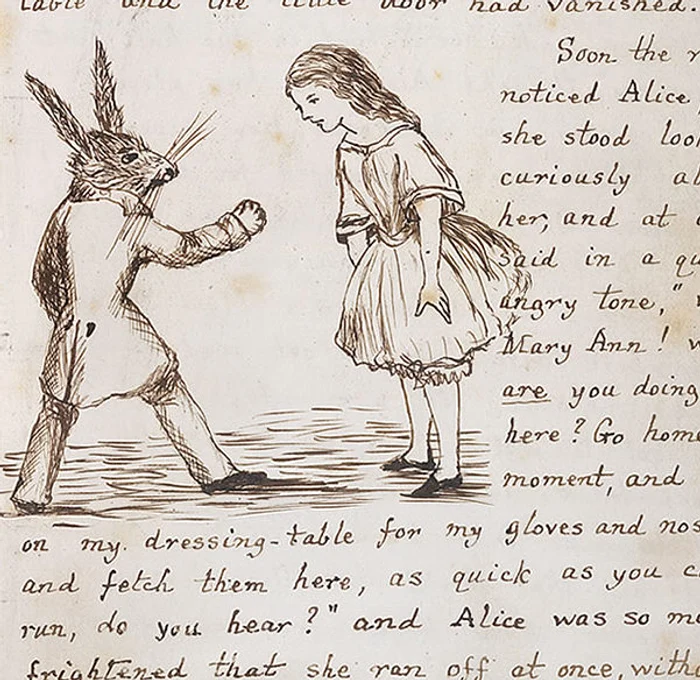 table and the little door had vanished.
Soon the
noticed Alice
she stood
curiously
her, and at
said in a
angry tone,"
Mary Ann!
are you doing
here? Go home
moment, and
on my dressing-table for my gloves and
and fetch them here, as quick as you
run, do you hear?" and Alice was so
frightened that she ran off at once,